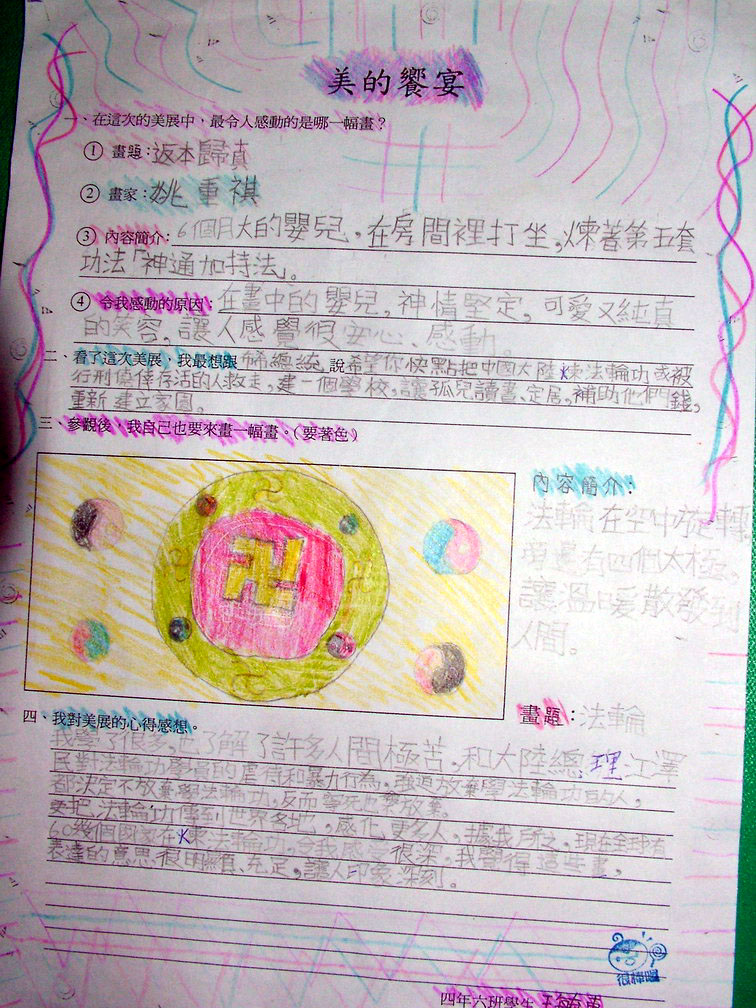 美的饗宴
一、在這次的美展中，最令人感動的是哪一幅畫？
① 畫題：返本歸真
② 畫家：姚重祺
③ 內容簡介：6個月大的嬰兒，在房間裡打坐，煉著第五套
功法「神通加持法」。
④ 令我感動的原因：在畫中的嬰兒，神情堅定，可愛又純真
的笑容，讓人感覺很安心、感動
二、看了這次美展，我最想跟布希總統 說希望你快點把中國大陸煉法輪功或被
行刑僥倖存活的人救走，建一個學校，讓孤兒讀書、定居，補助他們錢，
重新建立家園。
三、參觀後，我自己也要來畫一幅畫。（要著色）
內容簡介：
法輪在空中旋轉
旁邊有四個太極
讓溫暖散發到
人間。
畫題：法輪
四、我對美展的心得感想。
我學了很多，也了解了許多人間極苦，和大陸總理江澤
民對法輪功學員的虐待和暴力行為，強迫放棄學法輪功的人，
都決定不放棄學法輪功，反而寧死也不放棄。
要把法輪功傳到世界各地，感化更多人，據我所知，現在全球有
60幾個國家在煉法輪功，令我感覺很深，我覺得這些畫，
表達的意思很明顯、充足，讓人印象深刻。
很棒喔
四年六班學生